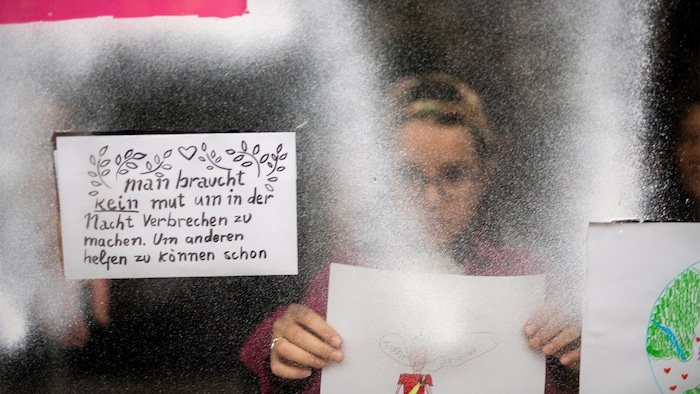 man braucht
kein mut um in der
Nacht Verbrechen zu
machen. Um anderen
helfen zu können schon